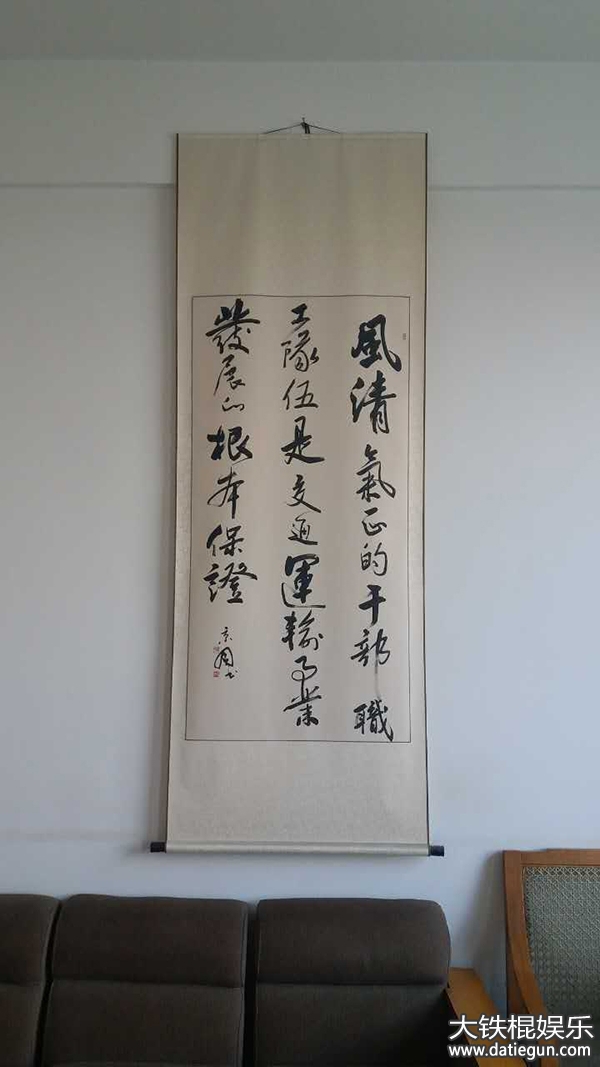 風清氣正的干部職
工隊伍是交通運輸事業
發展的根本保證
京周书
大铁棍娱乐
www.datiegun.com